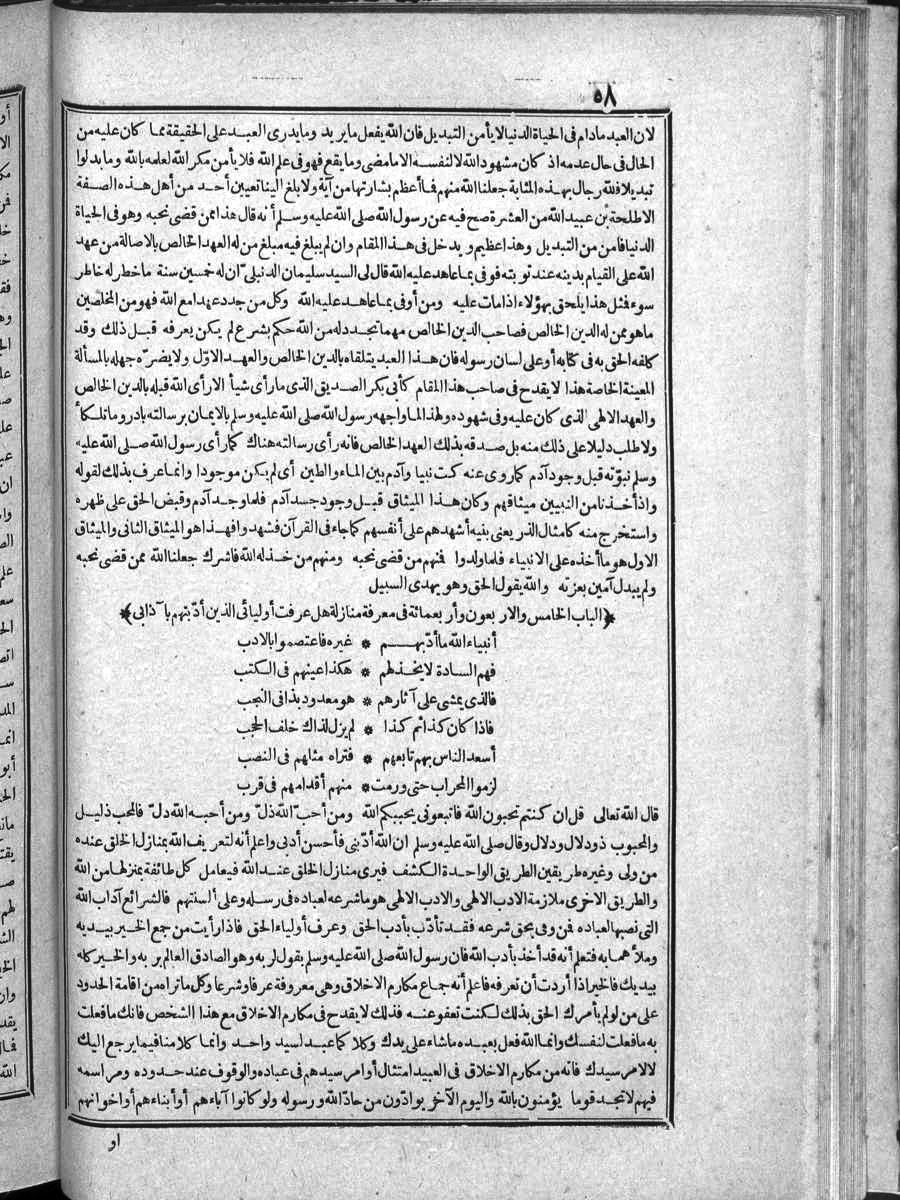 ٥٨
لان العبد مادام فى الحياة الدنيا لا يأمن التبديل فان الله يفعل ما يريد وما يدرى العبد على الحقيقة مما كان عليه من
الحال فى حال عدمه اذ كان مشهود الله لالنفسه الا ما مضى وما يقع فهو فى علم الله فلا يأمن مكر الله لعلمه بالله وما بدلوا
تبديلا فلله رجال بهذه المثابة جعلنا الله منهم فما أعظم بشارتها من آية ولا بلغ الينا تعيين أحد من أهل هذه الصفة
الا طلحة بن عبيد الله من العشرة صح فيه عن رسول الله صلى الله عليه وسلم أنه قال هذا ممن قضى نحبه وهو فى الحياة
الدنيا فامن من التبديل وهذا عظيم ويدخل فى هذا المقام وان لم يبلغ فيه مبلغ من له العهد الخالص بالاصالة من عهد
الله على القيام بدينه عند توبته فوفى بما عاهد عليه الله قال لى السيد سليمان الدنبلى ان له خمسين سنة ما خطر له خاطر
سوء فمثل هذا يلحق بهؤلاء اذا مات عليه ومن أوفى بما عاهد عليه الله وكل من جدد عهدا مع الله فهو من المخلصين
ما هو ممن له الدين الخالص فصاحب الدين الخالص مهما تجدد له من الله حكم بشرع لم يكن يعرفه قبل ذلك وقد
كلفه الحق به فى كتابه أو على لسان رسوله فان هذا العبد يتلقاه بالدين الخالص والعهد الاوّل ولا يضرّه جهله بالمسألة
المعينة الخاصة هذا لا يقدح فى صاحب هذا المقام كأبى بكر الصديق الذى ما رأى شيأ الا رأى الله قبله بالدين الخالص
والعهد الالهى الذى كان عليه وفى شهوده ولهذا لما واجهه رسول الله صلى الله عليه وسلم بالايمان برسالته بادر وما تلكأ
ولا طلب دليلا على ذلك منه بل صدقه بذلك العهد الخالص فانه رأى رسالته هناك كما رأى رسول الله صلى الله عليه
وسلم نبوّته قبل وجود آدم كما روى عنه كنت نبيا وآدم بين الماء والطين أى لم يكن موجودا وانما عرف بذلك لقوله
واذ أخذنا من النبيين ميثاقهم وكان هذا الميثاق قبل وجود جسد آدم فلما وجد آدم وقبض الحق على ظهره
واستخرج منه كامثال الذر يعنى بنيه أشهدهم على أنفسهم كما جاء فى القرآن فشهدوا فهذا هو الميثاق الثانى والميثاق
الاول هو ما أخذه على الانبياء فلما ولدوا فنهم من قضى نحبه ومنهم من خذله الله فاشرك جعلنا الله ممن قضى نحبه
ولم يبدل آمين بعزته والله يقول الحق وهو يهدى السبيل
﴿الباب الخامس والاربعون وأربعمائة فى معرفة منازلة هل عرفت أوليائى الذين أدّبتهم بآدابى﴾
أنبياء الله ما أدّبهم * غيره فاعتصموا بالادب
فهم السادة لا يخذلهم * هكذا عينهم فى الكتب
فالذى يمشى على آثارهم * هو معدود بذا فى النجب
فاذا كان كذا ثم كذا * لم يزل لذاك خلف الحجب
أسعد الناس بهم تابعهم * فتراه مثلهم فى النصب
لزموا المحراب حتى ورمت * منهم أقدامهم فى قرب
قال الله تعالى قل ان كنتم تحبون الله فاتبعونى يحببكم الله ومن أحبّ الله ذلّ ومن أحبه الله دلّ فالمحب ذليل
والمحبوب ذو دلال ودلال وقال صلى الله عليه وسلم ان الله أدّبنى فأحسن أدبى واعلم أنه لتعريف الله بمنازل الخلق عنده
من ولى وغيره طريقين الطريق الواحدة الكشف فيرى منازل الخلق عند الله فيعامل كل طائفة بمنزلها من الله
والطريق الاخرى ملازمة الادب الالهى والادب الالهى هو ما شرعه لعباده فى رسله وعلى ألسنتهم فالشرائع آداب الله
التى نصبها لعباده فمن وفى بحق شرعه فقد تأدّب بأدب الحق وعرف أولياء الحق فاذا رأيت من جمع الخير بيديه
وملأهما به فتعلم أنه قد أخذ بأدب الله فان رسول الله صلى الله عليه وسلم يقول لربه وهو الصادق العالم بربه والخير كله
بيديك فالخير اذا أردت أن تعرفه فاعلم أنه جماع مكارم الاخلاق وهى معروفة عرفا وشرعا وكل ما تراه من اقامة الحدود
على من لو لم يأمرك الحق بذلك لكنت تعفو عنه فذلك لا يقدح فى مكارم الاخلاق مع هذا الشخص فانك ما فعلت
به ما فعلت لنفسك وانما الله فعل بعبده ما شاء على يدك وكلا كما عبد لسيد واحد وانما كلامنا فيما يرجع اليك
لا لامر سيدك فانه من مكارم الاخلاق فى العبيد امتثال أوامر سيدهم فى عباده والوقوف عند حدوده ومراسمه
فيهم لا تجد قوما يؤمنون بالله واليوم الآخر يوادّون من حادّ الله ورسوله ولو كانوا آباءهم أو أبناءهم أو اخوانهم
او